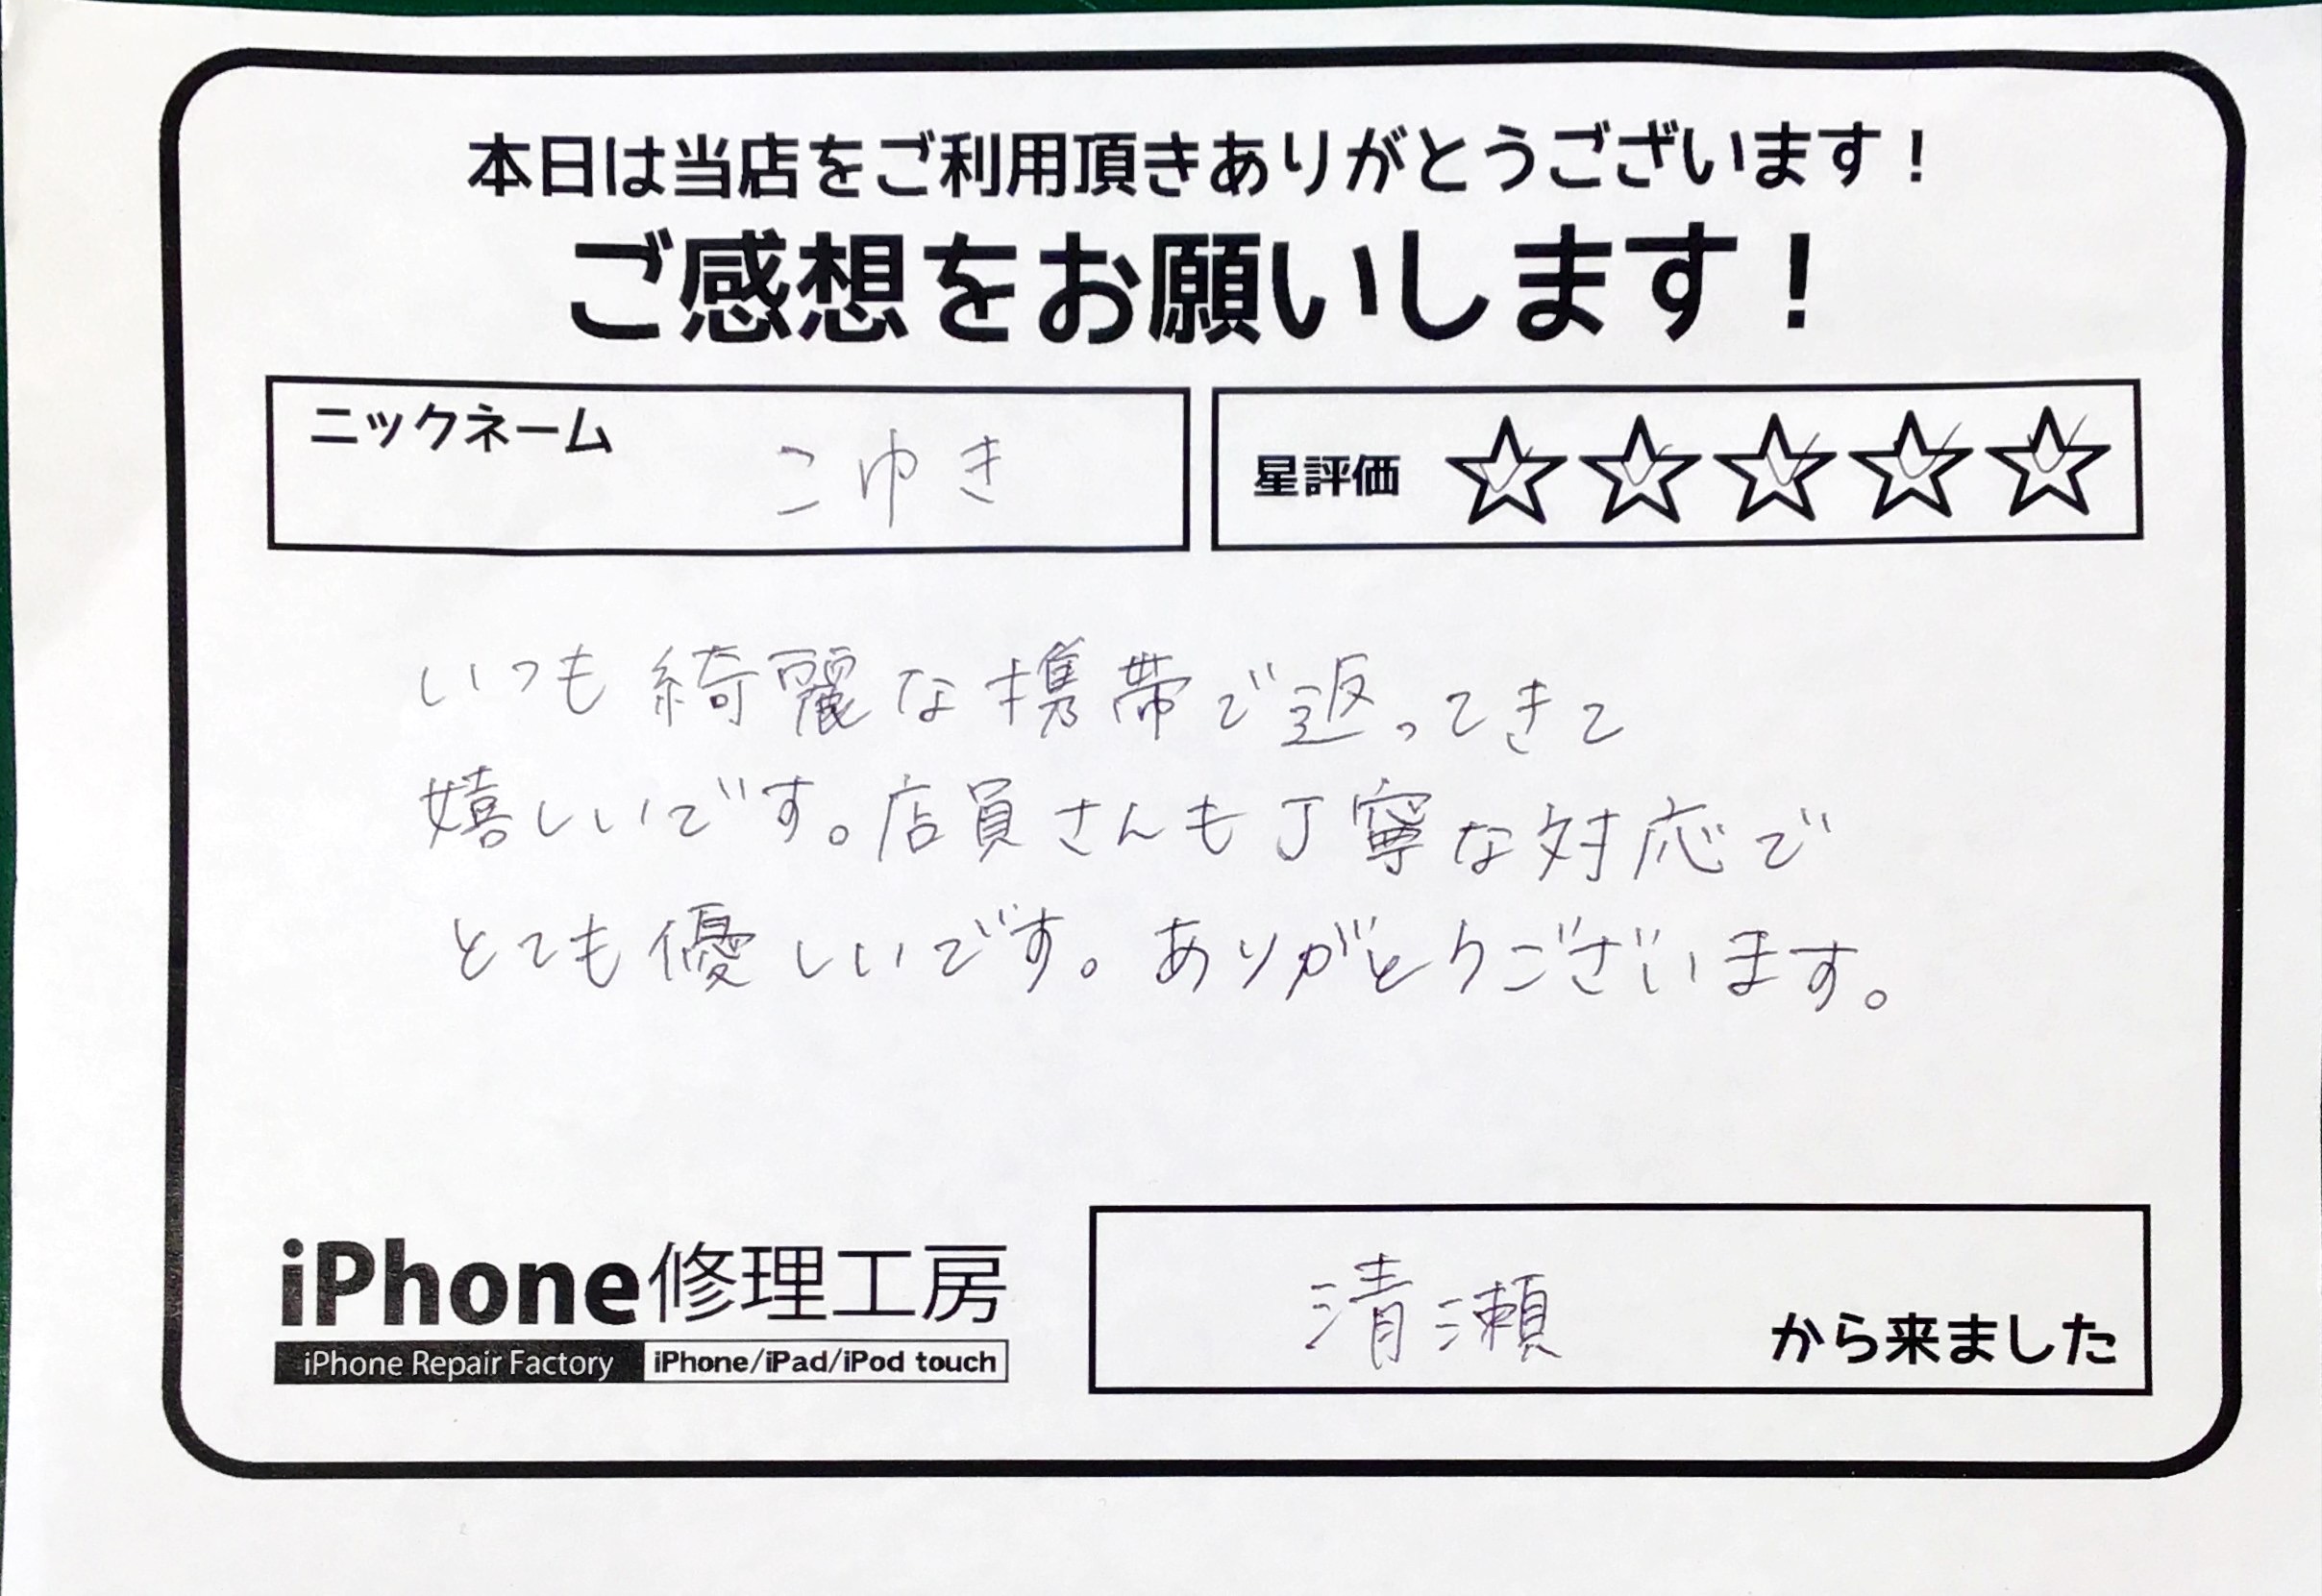 本日は当店をご利用頂きありがとうございます！
ご感想をお願いします！
ニックネーム こゆき
星評価 ☆☆☆☆☆
いつも綺麗な携帯で返ってきて
嬉しいです。店員さんも丁寧な対応で
とても優しいです。ありがとうございます。
iPhone修理工房
iPhone Repair Factory iPhone/iPad/iPod touch
清瀬 から来ました